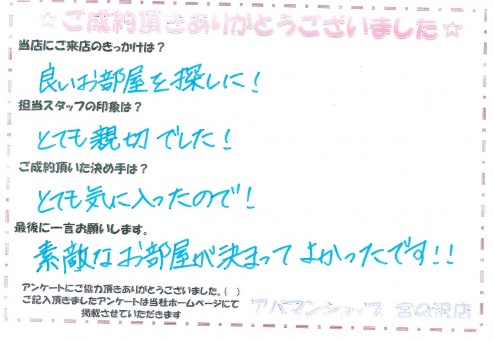 ☆ご成約頂きありがとうございました☆
当店にご来店のきっかけは？
良いお部屋を探しに！
担当スタッフの印象は？
とても親切でした！
ご成約頂いた決め手は？
とても気に入ったので！
最後に一言お願いします。
素敵なお部屋が決まってよかったです！！
アンケートにご協力頂きありがとうございました。(　)
ご記入頂きましたアンケートは当社ホームページにて
掲載させていただきます
アパマンショップ 宮の沢店